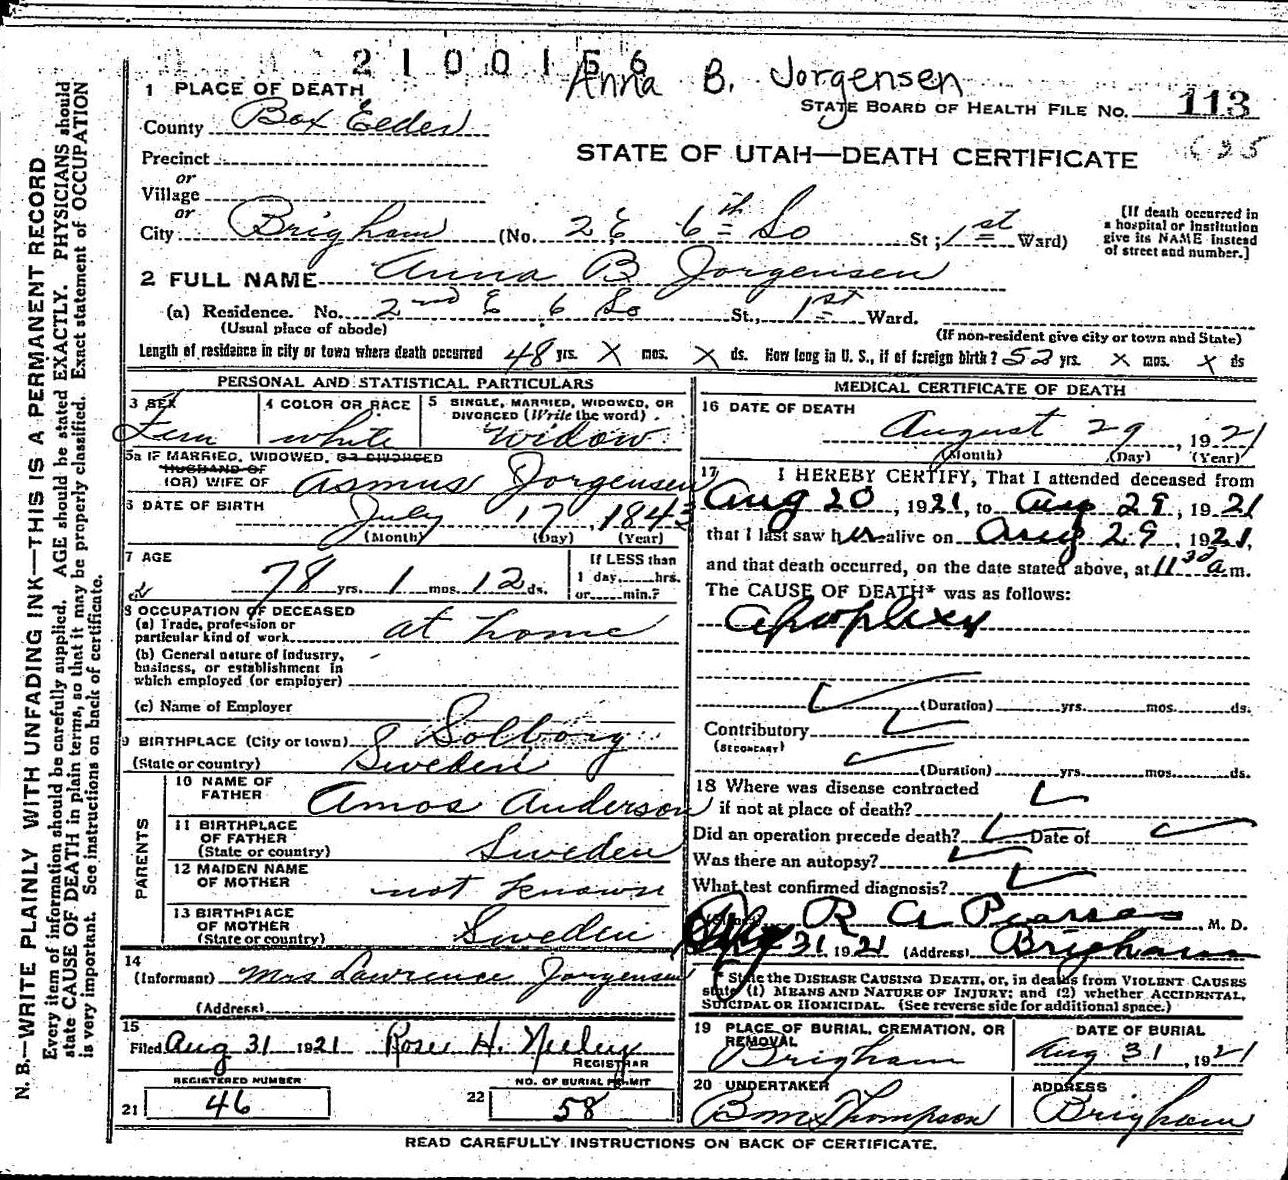 2100156
Anna B. Jorgensen
STATE BOARD OF HEALTH FILE NO. 113
1 PLACE OF DEATH
County Box Elder
STATE OF UTAH—DEATH CERTIFICATE
Precinct
or
Village
or
City Brigham (No. 2 E 6th So St; 1st Ward)
[If death occurred in
a hospital or institution
give its NAME instead
of street and number.]
2 FULL NAME Anna B Jorgensen
(a) Residence. No. 2nd E 6 So St., 1st Ward.
(Usual place of abode)
(If non-resident give city or town and State)
Length of residence in city or town where death occurred 48 yrs. X mos. X ds. How long in U. S., if of foreign birth? 52 yrs. X mos. X ds
PERSONAL AND STATISTICAL PARTICULARS
3 SEX
Fem
4 COLOR OR RACE
white
5 SINGLE, MARRIED, WIDOWED, OR
DIVORCED (Write the word)
Widow
5a IF MARRIED, WIDOWED, OR DIVORCED
HUSBAND OF
(OR) WIFE OF Asmus Jorgensen
6 DATE OF BIRTH
July 17, 1843
(Month) (Day) (Year)
7 AGE
78 yrs. 1 mos. 12 ds.
If LESS than
1 day, hrs.
or min.?
8 OCCUPATION OF DECEASED
(a) Trade, profession or
particular kind of work at home
(b) General nature of industry,
business, or establishment in
which employed (or employer)
(c) Name of Employer
9 BIRTHPLACE (City or town) Solborg
(State or country) Sweden
PARENTS
10 NAME OF
FATHER Amos Anderson
11 BIRTHPLACE
OF FATHER
(State or country) Sweden
12 MAIDEN NAME
OF MOTHER not known
13 BIRTHPLACE
OF MOTHER
(State or country) Sweden
14
(Informant) Mrs Lawrence Jorgensen
(Address)
15
Filed Aug 31 1921 Rose H. Neeley
REGISTRAR
REGISTERED NUMBER
21 46
NO. OF BURIAL PERMIT
22 58
MEDICAL CERTIFICATE OF DEATH
16 DATE OF DEATH
August 29, 1921
(Month) (Day) (Year)
17 I HEREBY CERTIFY, That I attended deceased from
Aug 20, 1921, to Aug 29, 1921
that I last saw her alive on Aug 29, 1921,
and that death occurred, on the date stated above, at 11 30 a.m.
The CAUSE OF DEATH* was as follows:
Apoplexy
(Duration) yrs. mos. ds.
Contributory
(SECONDARY)
(Duration) yrs. mos. ds.
18 Where was disease contracted
if not at place of death?
Did an operation precede death? Date of
Was there an autopsy?
What test confirmed diagnosis?
(Signed) R A Pearse, M. D.
31 1921 (Address) Brigham
* State the DISEASE CAUSING DEATH, or, in deaths from VIOLENT CAUSES
state (1) MEANS AND NATURE OF INJURY; and (2) whether ACCIDENTAL,
SUICIDAL OR HOMICIDAL. (See reverse side for additional space.)
19 PLACE OF BURIAL, CREMATION, OR
REMOVAL
Brigham
DATE OF BURIAL
Aug 31, 1921
20 UNDERTAKER
Thompson
ADDRESS
Brigham
READ CAREFULLY INSTRUCTIONS ON BACK OF CERTIFICATE.
N. B.—WRITE PLAINLY WITH UNFADING INK—THIS IS A PERMANENT RECORD
Every item of information should be carefully supplied. AGE should be stated EXACTLY. PHYSICIANS should
state CAUSE OF DEATH in plain terms, so that it may be properly classified. Exact statement of OCCUPATION
is very important. See instructions on back of certificate.